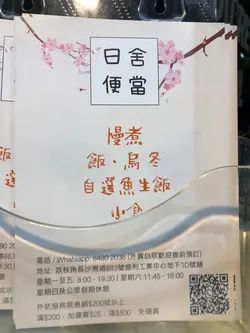 日舍
便當
慢煮
飯·烏冬
自選魚生飯
小食
電話 / Whatsapp: 6490 2036 (外賣自取歡迎提前預訂)
地址: 荔枝角長沙灣道883號億利工業中心地下1D號舖
星期一至五: 8:00 - 19:30 | 星期六:11:45 - 16:00
星期日及公眾假期休息
外送服務最惠顧$200或以上
滿$200 , 加運費$25 ; 滿$500 , 免運費